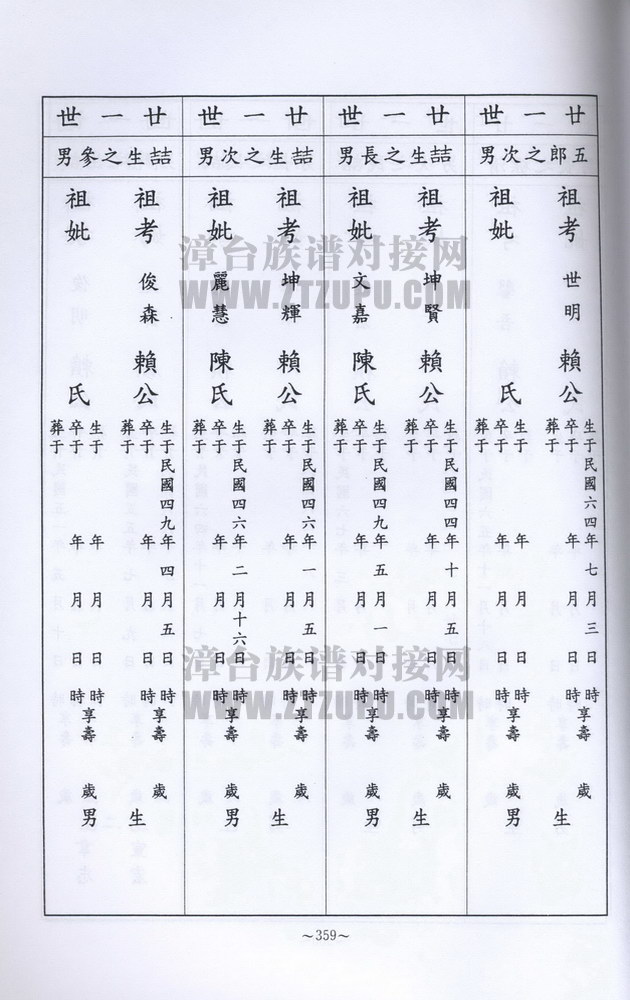 廿一世
五郎之次男
祖考 世明 賴公
生于民國六四年七月三日時
卒于 年 月 日時享壽 歲
葬于
祖妣 氏
生于 年 月 日時
卒于 年 月 日時享壽 歲
葬于
生男
廿一世
喆生之長男
祖考 坤賢 賴公
生于民國四四年十月五日時
卒于 年 月 日時享壽 歲
葬于
祖妣 文嘉 陳氏
生于民國四九年五月一日時
卒于 年 月 日時享壽 歲
葬于
生男
廿一世
喆生之次男
祖考 坤輝 賴公
生于民國四六年一月五日時
卒于 年 月 日時享壽 歲
葬于
祖妣 麗慧 陳氏
生于民國四六年二月十六日時
卒于 年 月 日時享壽 歲
葬于
生男
廿一世
喆生之參男
祖考 俊森 賴公
生于民國四九年四月五日時
卒于 年 月 日時享壽 歲
葬于
祖妣 氏
生于 年 月 日時
卒于 年 月 日時享壽 歲
葬于
生男
~359~
漳台族谱对接网
WWW.ZTZUPU.COM
漳台族谱对接网
WWW.ZTZUPU.COM